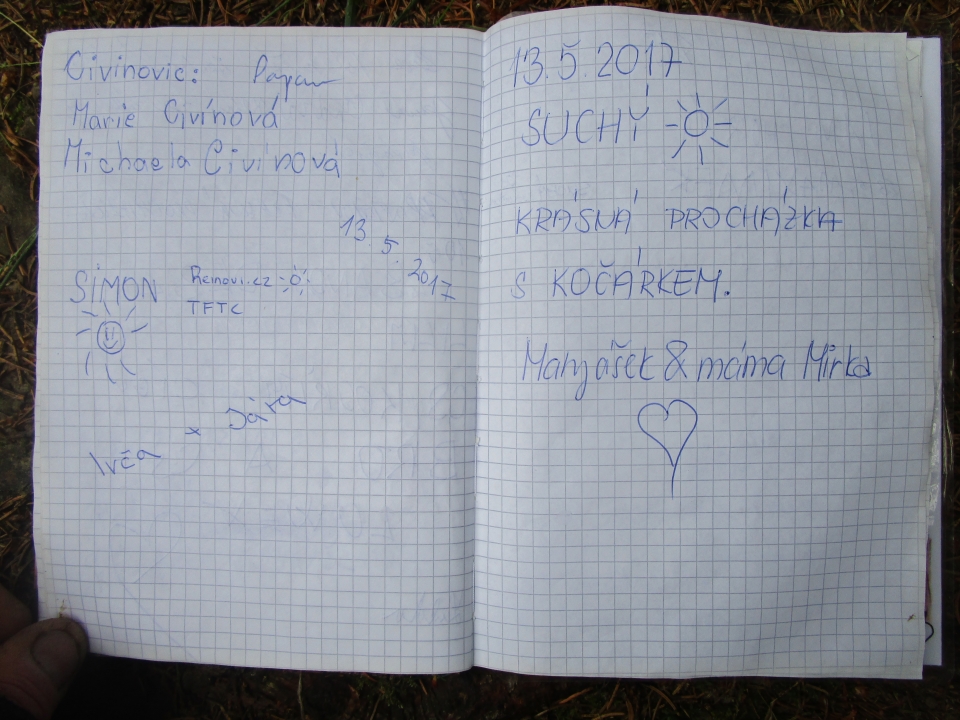 Civínovic:
Marie Civínová
Michaela Civínová
13. 5. 2017
ŠIMON
TFTC
Ivča + Jára
13.5.2017
SUCHÝ
KRÁSNÁ PROCHÁZKA
S KOČÁRKEM.
& máma Mirka